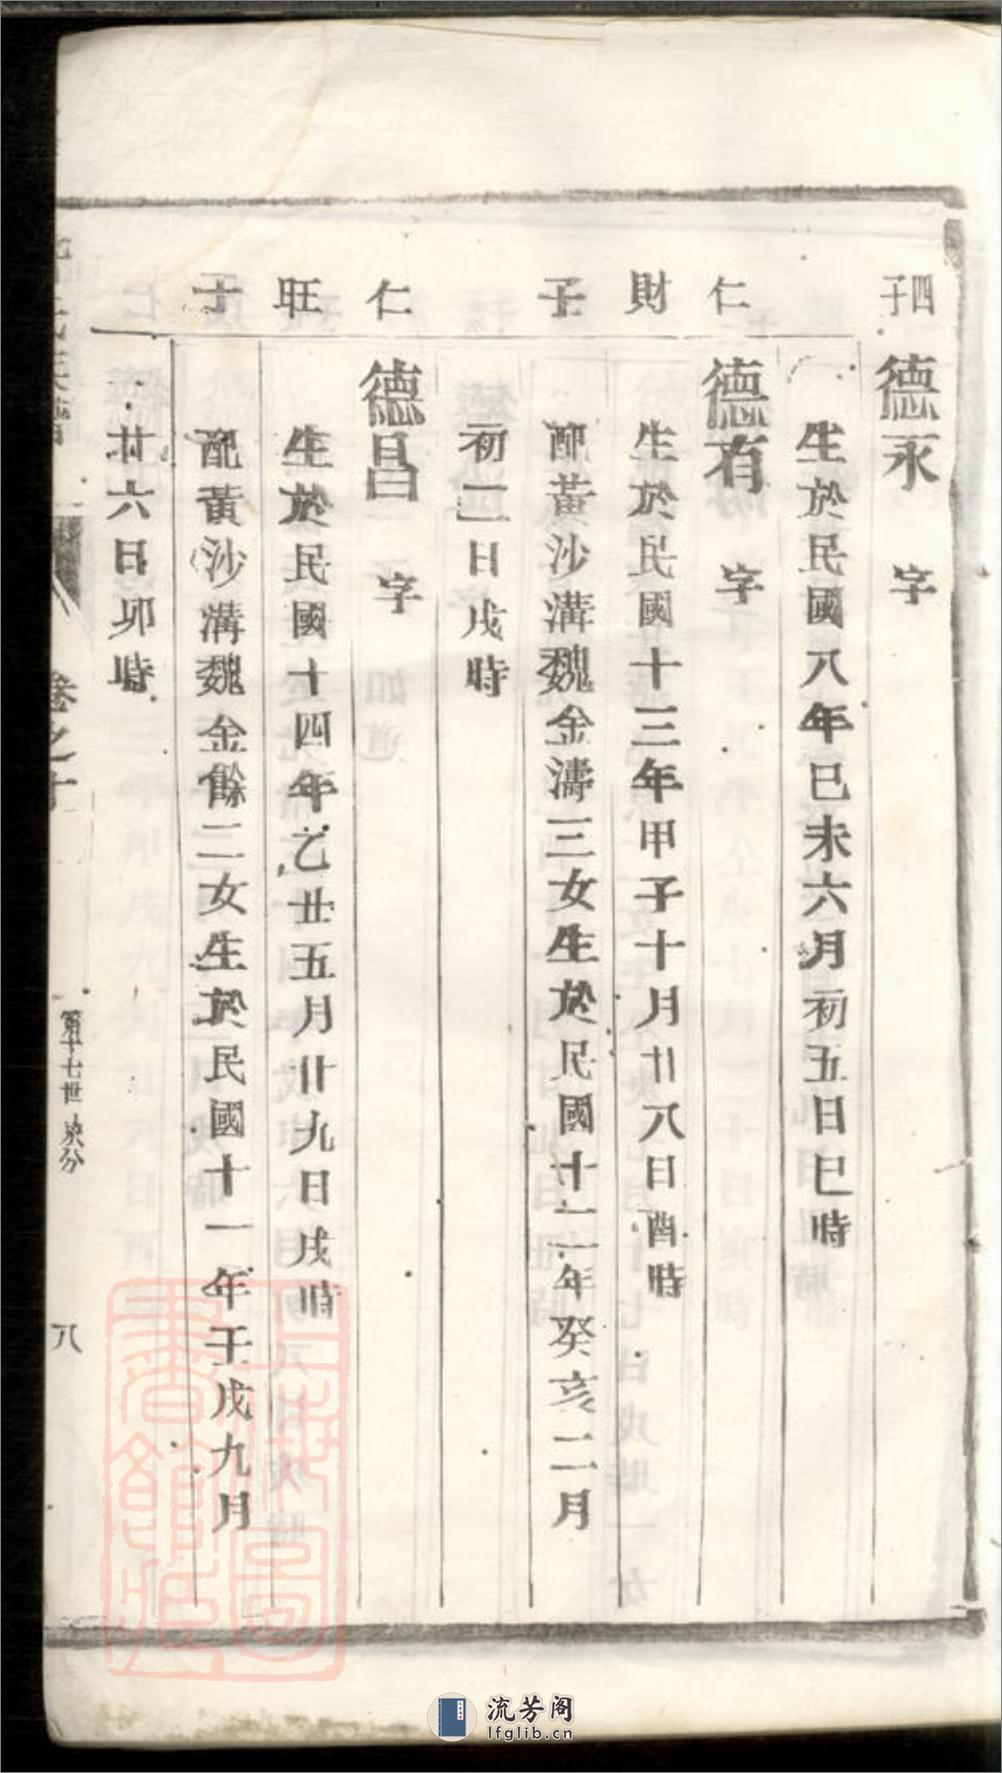 四子
德永 字
生於民國八年巳未六月初五日巳時
仁
德有 字
財
生於民國十三年甲子十月廿八日酉時
子
配黃沙溝魏金濤三女生於民國十二年癸亥二月
初二日戌時
仁
德昌 字
旺
生於民國十四年乙丑五月廿九日戌時
子
配黃沙溝魏金餘二女生於民國十一年壬戌九月
廿六日卯時
卷之十
第十七世 癸分
八
流芳阁
lfglib.cn